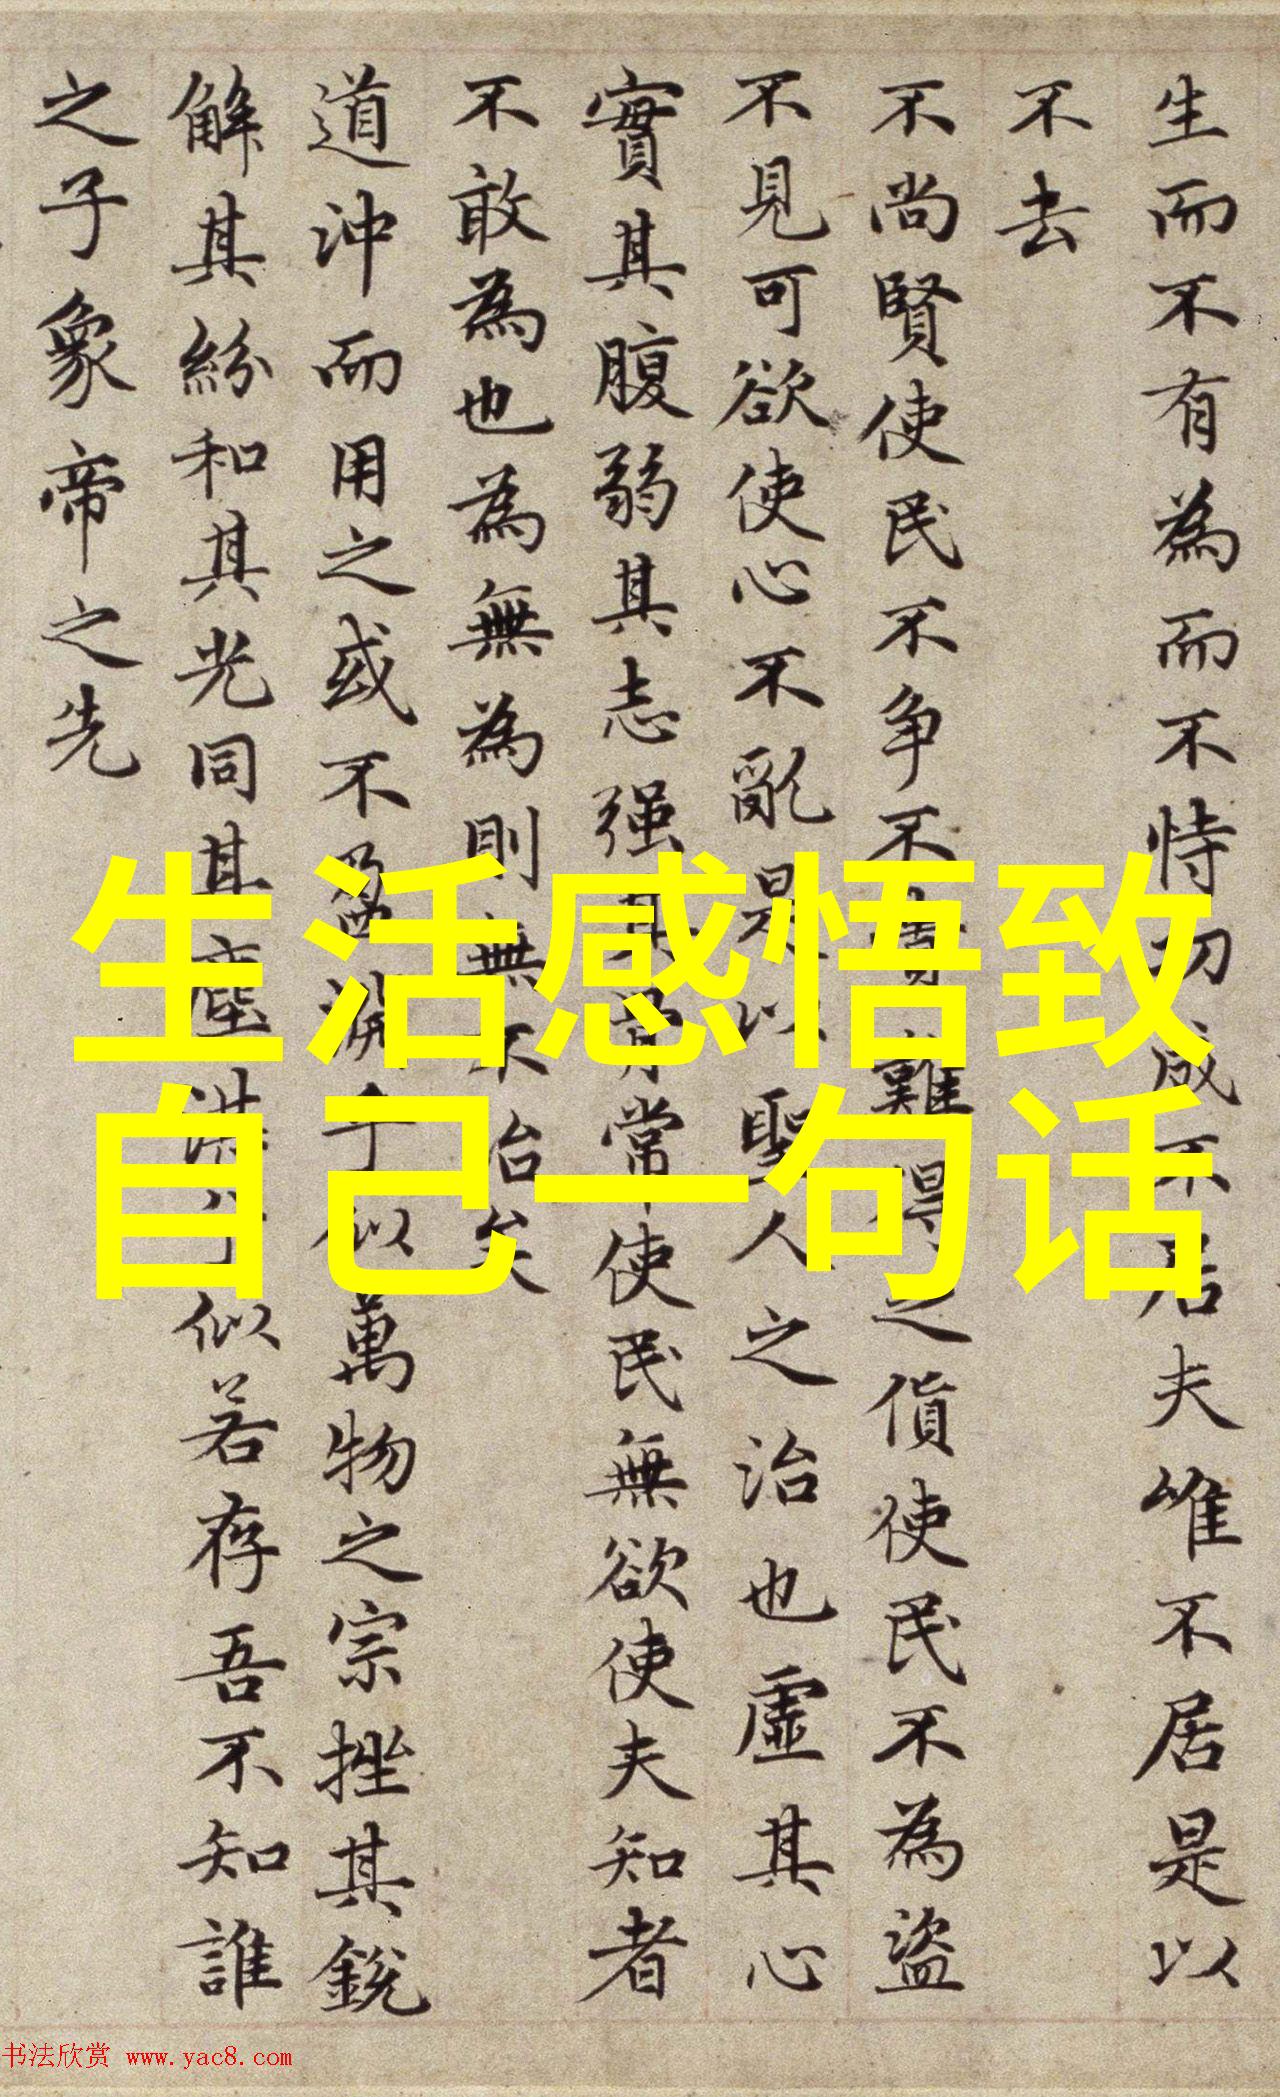 生而不有為而不恃功成不居夫唯不居是以
不去
不尚賢使民不争不貴難得之貨使民不為盜
不見可欲使心不亂是以聖人之治也虛其心
實其腹弱其志强其骨常使民無欲使夫知者
不敢為也為無為則無不治矣
道沖而用之或不盈淵乎似萬物之宗挫其銳
解其紛和其光同其塵湛乎似若存吾不知誰
之子象帝之先
生活感悟致
自己一句话
书法欣赏 www.yac8.com